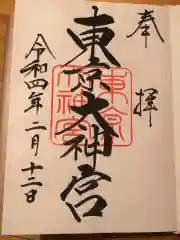 奉拝
東京大神宮
東京大神宮
令和四年二月十二日